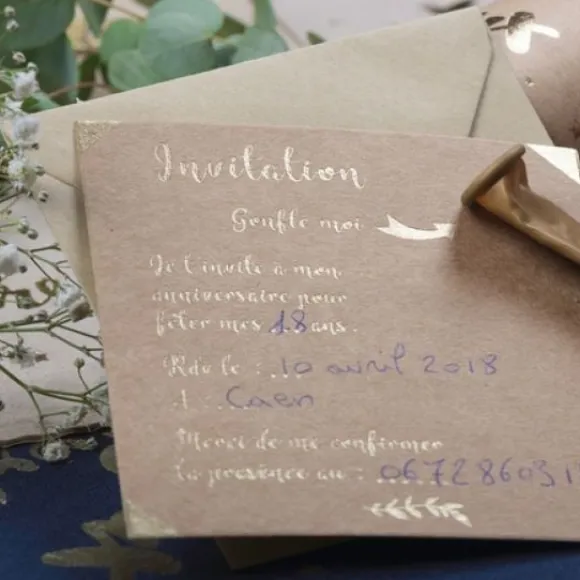 Invitation
Gonfle moi
Je t'invite à mon
anniversaire pour
fêter mes 18 ans.
Rdv le : 10 avril 2018
A : Caen
Merci de me confirmer
ta présence au :